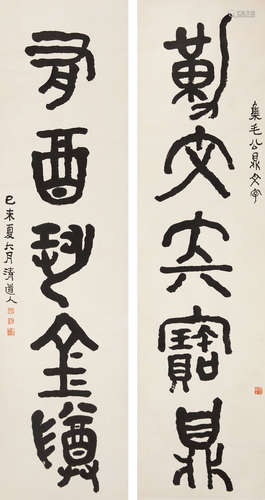 勤文寶鼎
集毛公鼎文字
有酉金尊
己未夏六月清道人